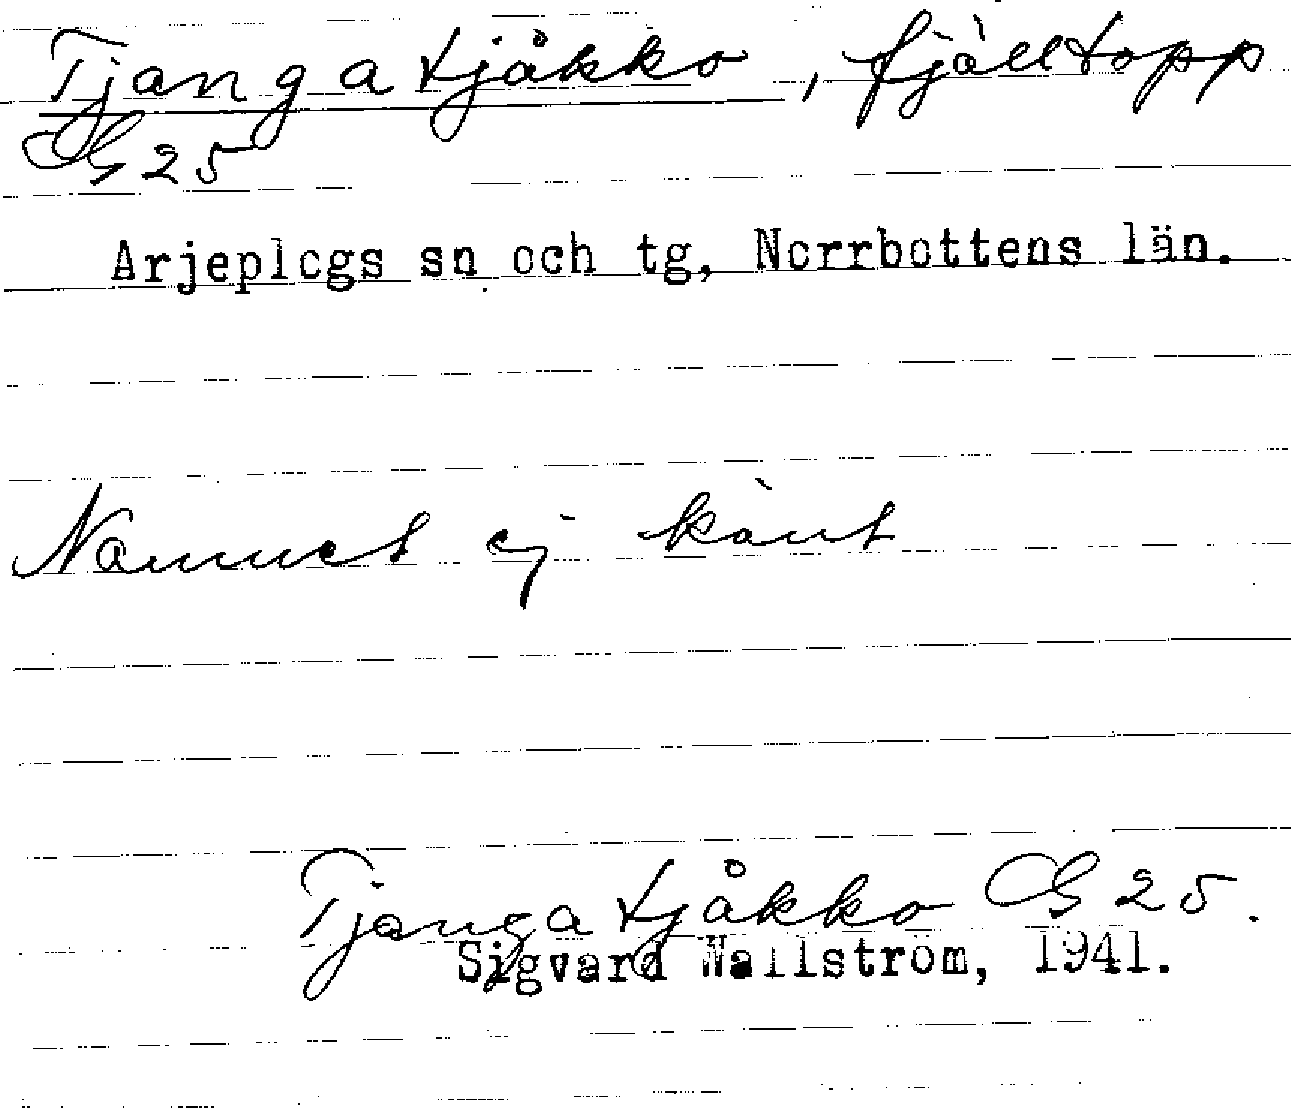 Tjangatjåkko, fjälltopp
G 25
Arjeplogs sn och tg, Norrbottens län.
Namnet ej känt
Tjangatjåkko G 25.
Sigvard Wallström, 1941.